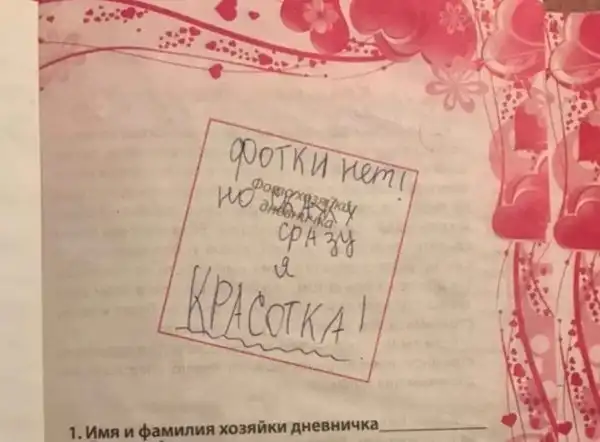 фотки нет!
Фото хозяйки
но скажу
дневничка
сразу
я
КРАСОТКА!
1. Имя и фамилия хозяйки дневничка